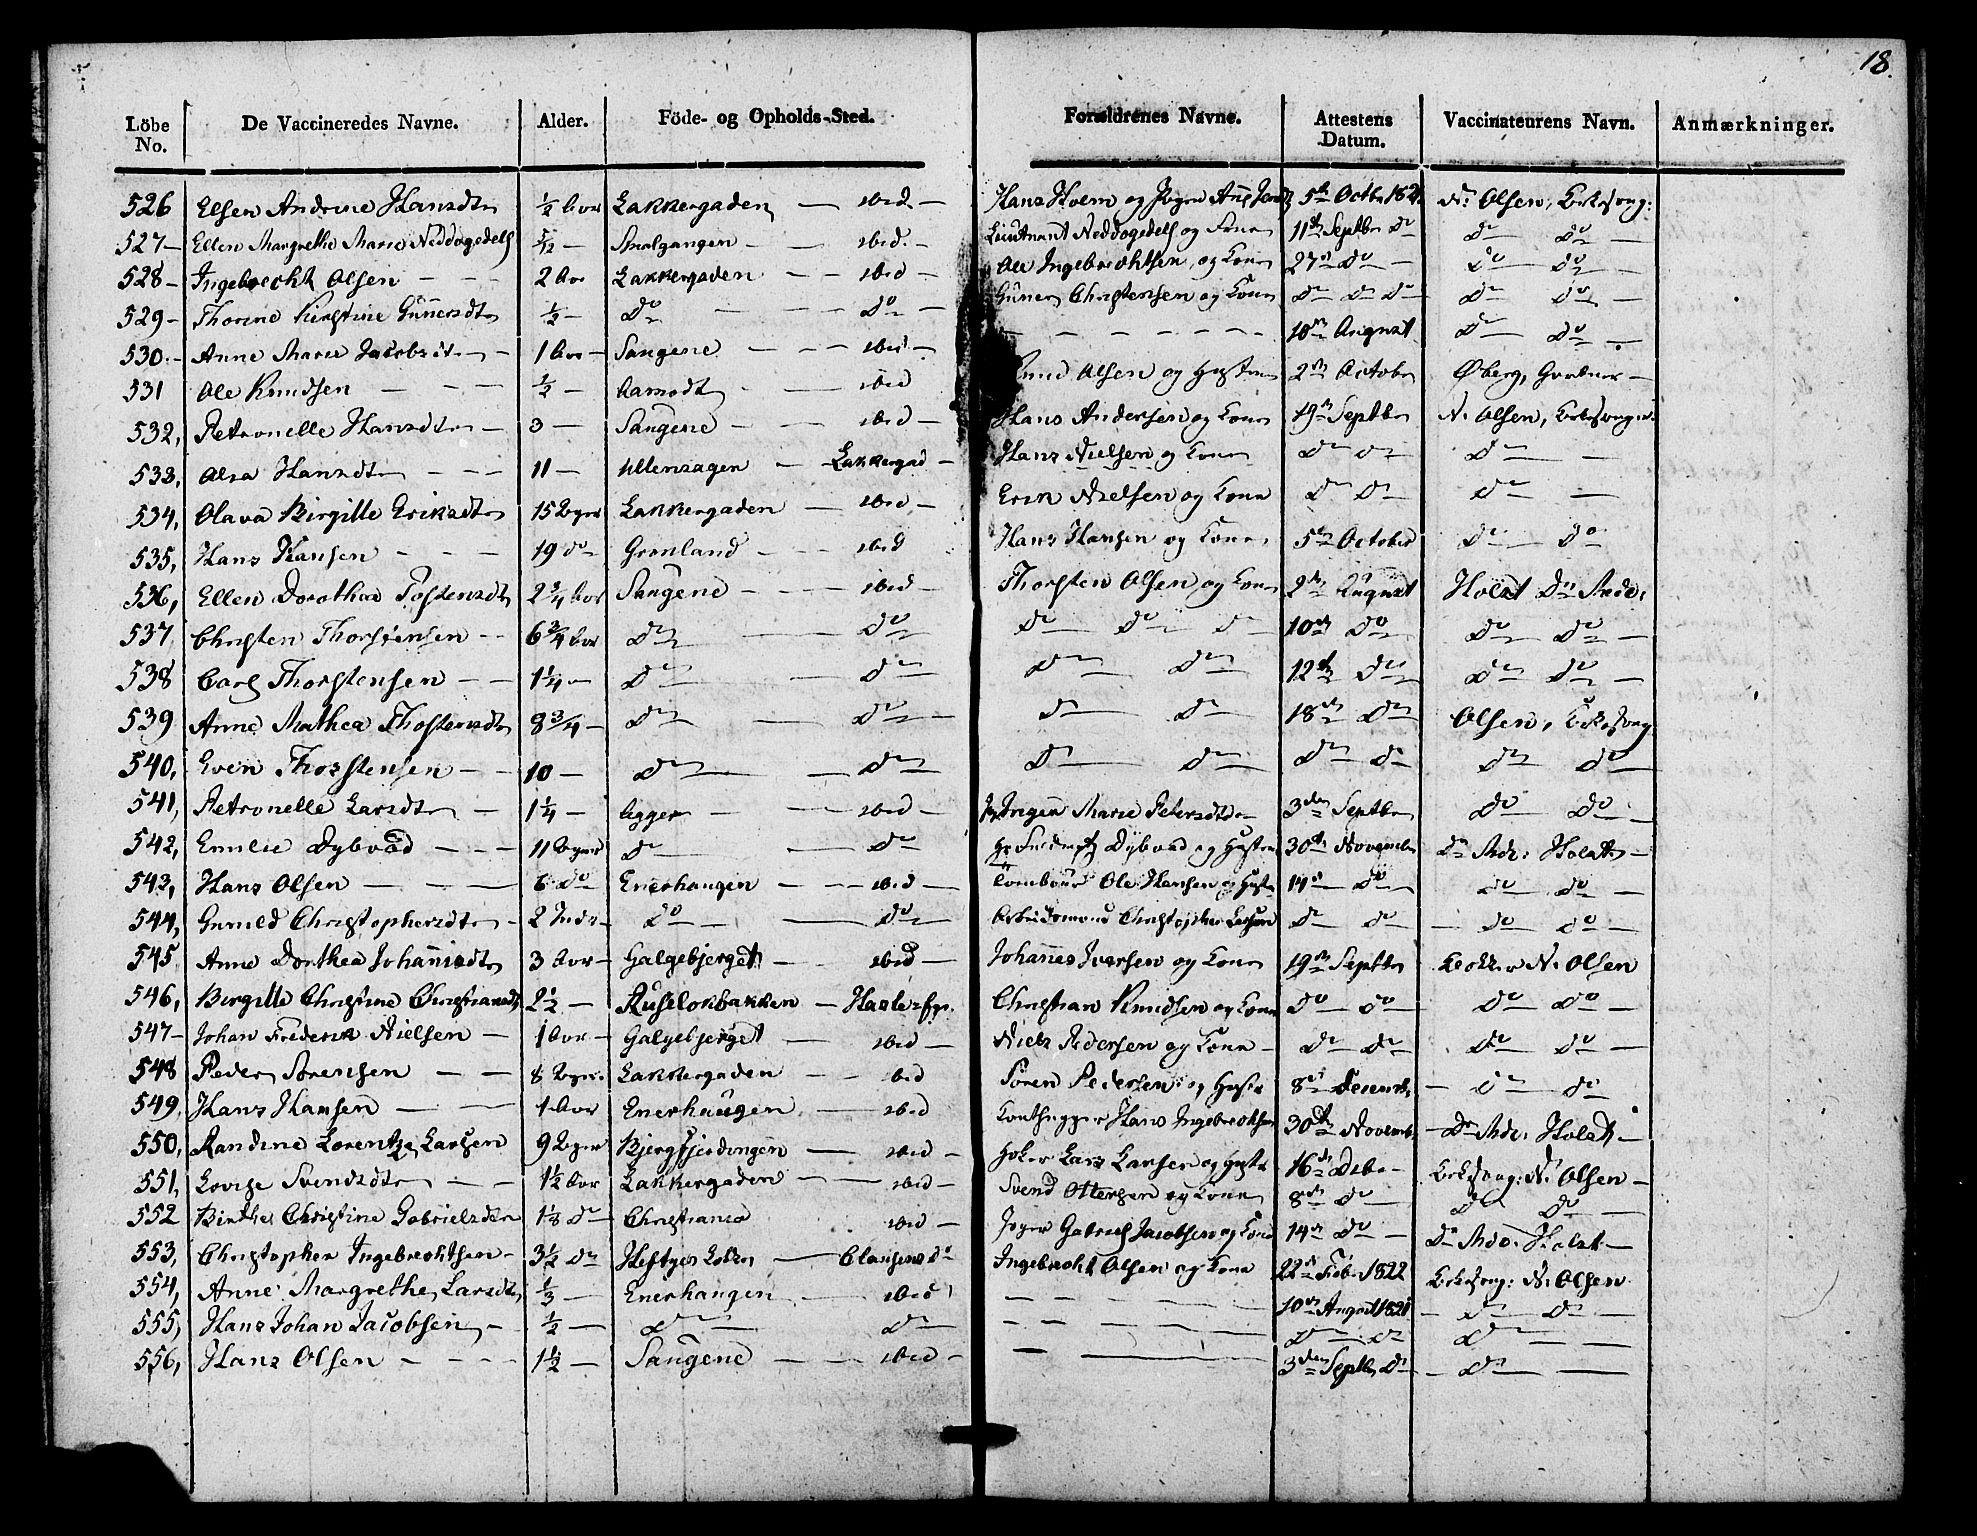 18.
Löbe No. De Vaccineredes Navne. Alder. Föde- og Opholds-Sted. Forældrenes Navne. Attestens Datum. Vaccinateurens Navn. Anmærkninger.
526 Elsen Andrine Hansdtr ½ Aar Lakkergaden — ibid. — Hans Holm og 5te Octbr 1821 N. Olsen, Kirkesang:
527 — Ellen Margrethe Marie Neddogedels — Smalgangen — ibid. — Lieutnant Neddogedels og Kone 11te Septbr do do do —
528 — Ingebrecht Olsen — — 2 Aar Lakkergaden — — ibid — Ole Ingebrechtsen, og Kone 27de do — do do —
529 — Thorine Kirstine Gunersdtr ½ — do — — do — Guner Christensen og Kone do do do do do —
530. — Anne Marie Jacobsdtr — 1 Aar — Sangene — — ibid — — — — — 10de August do do —
531 Ole Knudsen — — — ½ — Aamodt — ibid Knud Olsen og Hustru 2den October Øberg, Gartner —
532, Petronelle Hansdtr — 3 — Sangene — — ibid — Hans Andersen og Kone 19de Septbr N. Olsen, Kirkesanger
533, Olea Hansdtr — — — 11 — Ullensagen — Lakkergad — Hans Nielsen og Kone do do do —
534, Olava Birgitte Eriksdtr 15 Uger Lakkergaden — ibid — Erik Nielsen og Kone do do do —
535, Hans Hansen — — — 19 do Grønland — — ibid Hans Hansen og Kone 5te October do do
536, Ellen Dorothea Tostensdtr 2¾ Aar Sangene — — ibid — Thorsten Olsen og Kone 2den August Holst Dr Med:
537, Christen Thorstensen — — 6¾ Aar do — do do do do 10de do do do —
538 Carl Thorstensen — — 1¼ — do do do do 12te do do do —
539 Anne Mathea Thostensdtr 8¾ — do — do — do do 18de do Olsen, Kirkesang
540, Even Thorstensen — — 10 — do — do do do do do do do
541, Petronelle Larsdtr — 1¼ — Agger — ibid — Pigen Marie Petersdtr 3den Septbr do do —
542, Emilie Dybvad — — — 11 Uger do — do Dybvad og Hustru 30te Novembr Dr Med: Holst —
543, Hans Olsen — — — 6 do Enerhaugen — — ibid — Tambour Ole Hansen og Hustr 14de do do do —
544, Gunild Christophersdtr — 2 do — do Arbeidsmand Christopher Larsen do do do do
545 Anne Dorthea Johannisdtr 3 Aar — Galgebjerget — ibid — Johannes Iversen og Kone 19de Septbr Klokker N. Olsen
546, Birgitte Christine Christiansdtr 2½ — Ruseløkbakken — Christian Knudsen og Kone do do do do —
547 — Johan Frederik Nielsen — 1 Aar — Galgebjerget — ibid — Niels Pedersen og Kone — do do do do —
548 Peder Sørensen — — 8 Uger. Lakkergaden — — ibid Søren Pedersen og Hustr 8de Decemb. — do do
549, Hans Hansen — — 1 Aar Enerhaugen — ibid Hans Ingebrechtsen 30te Novemb. — Dr Med: Holst —
550, Randine Lorentze Larsen 9 Uger Bjergfjerdingen — ibid — Høker Lars Larsen og Hustr 16de Debr — Kirkesang: N. Olsen —
551, Lovise Svendsdtr — — 1½ Aar Lakkergaden — — ibid — Svend Ottersen og Kone 8de do — do do —
552 Birthe Christine Gabrielsdtr 1⅛ do Christiania ibid — Gabriel Jacobsen og Kone 14de do — Dr Med: Holst —
553, Christopher Ingebrechtsen — 3½ do Heftyes Løkken — Clausens do Ingebrecht Olsen og Kone 22de Febr 1822 Kirkesang: N. Olsen
554, Anne Margrethe Larsdtr ⅓ — Enerhaugen — ibid — — — 10de August 1821 — do do —
555, Hans Johan Jacobsen — ½ — do do — — — do do do —
556, Hans Olsen — — — 1½ — Sangene — — ibid — — — 3den Septbr do — do —